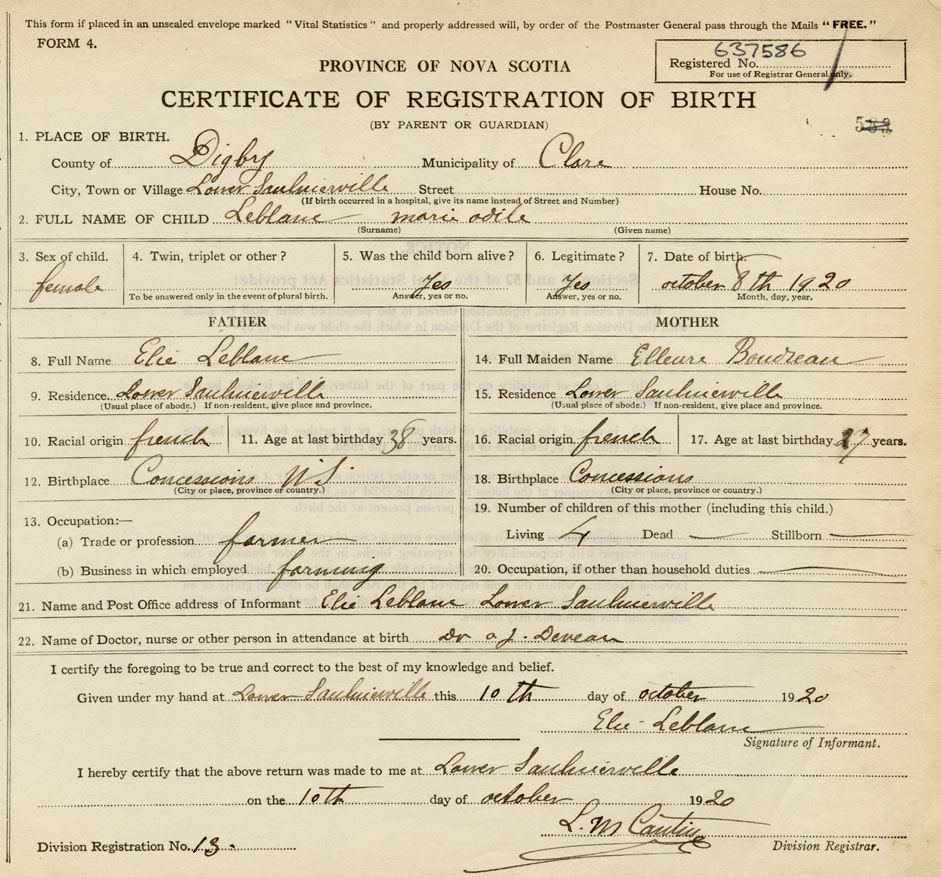 This form if placed in an unsealed envelope marked "Vital Statistics" and properly addressed will, by order of the Postmaster General pass through the Mails "FREE."
FORM 4.
637586
Registered No.
For use of Registrar General only.
PROVINCE OF NOVA SCOTIA
CERTIFICATE OF REGISTRATION OF BIRTH
(BY PARENT OR GUARDIAN)
1. PLACE OF BIRTH.
County of Digby Municipality of Clare
City, Town or Village Lower Saulnierville Street House No.
(If birth occurred in a hospital, give its name instead of Street and Number)
2. FULL NAME OF CHILD Leblanc marie odile
(Surname) (Given name)
3. Sex of child. 4. Twin, triplet or other? 5. Was the child born alive? 6. Legitimate? 7. Date of birth.
female Yes Yes october 8th 1920
To be answered only in the event of plural birth. Answer, yes or no. Answer, yes or no. Month, day, year.
FATHER MOTHER
8. Full Name Elie Leblanc 14. Full Maiden Name Boudreau
9. Residence. Lower Saulnierville 15. Residence Lower Saulnierville
(Usual place of abode.) If non-resident, give place and province. (Usual place of abode.) If non-resident, give place and province.
10. Racial origin french 11. Age at last birthday 38 years. 16. Racial origin french 17. Age at last birthday 27 years.
12. Birthplace Concessions N S 18. Birthplace Concessions
(City or place, province or country.) (City or place, province or country.)
13. Occupation:— 19. Number of children of this mother (including this child.)
(a) Trade or profession farmer Living 4 Dead — Stillborn —
(b) Business in which employed farming 20. Occupation, if other than household duties
21. Name and Post Office address of Informant Elie Leblanc Lower Saulnierville
22. Name of Doctor, nurse or other person in attendance at birth Dr a J. Deveau
I certify the foregoing to be true and correct to the best of my knowledge and belief.
Given under my hand at Lower Saulnierville this 10th day of october 1920
Elie Leblanc
Signature of Informant.
I hereby certify that the above return was made to me at Lower Saulnierville
on the 10th day of october 1920
L. M
Division Registration No. 13. Division Registrar.